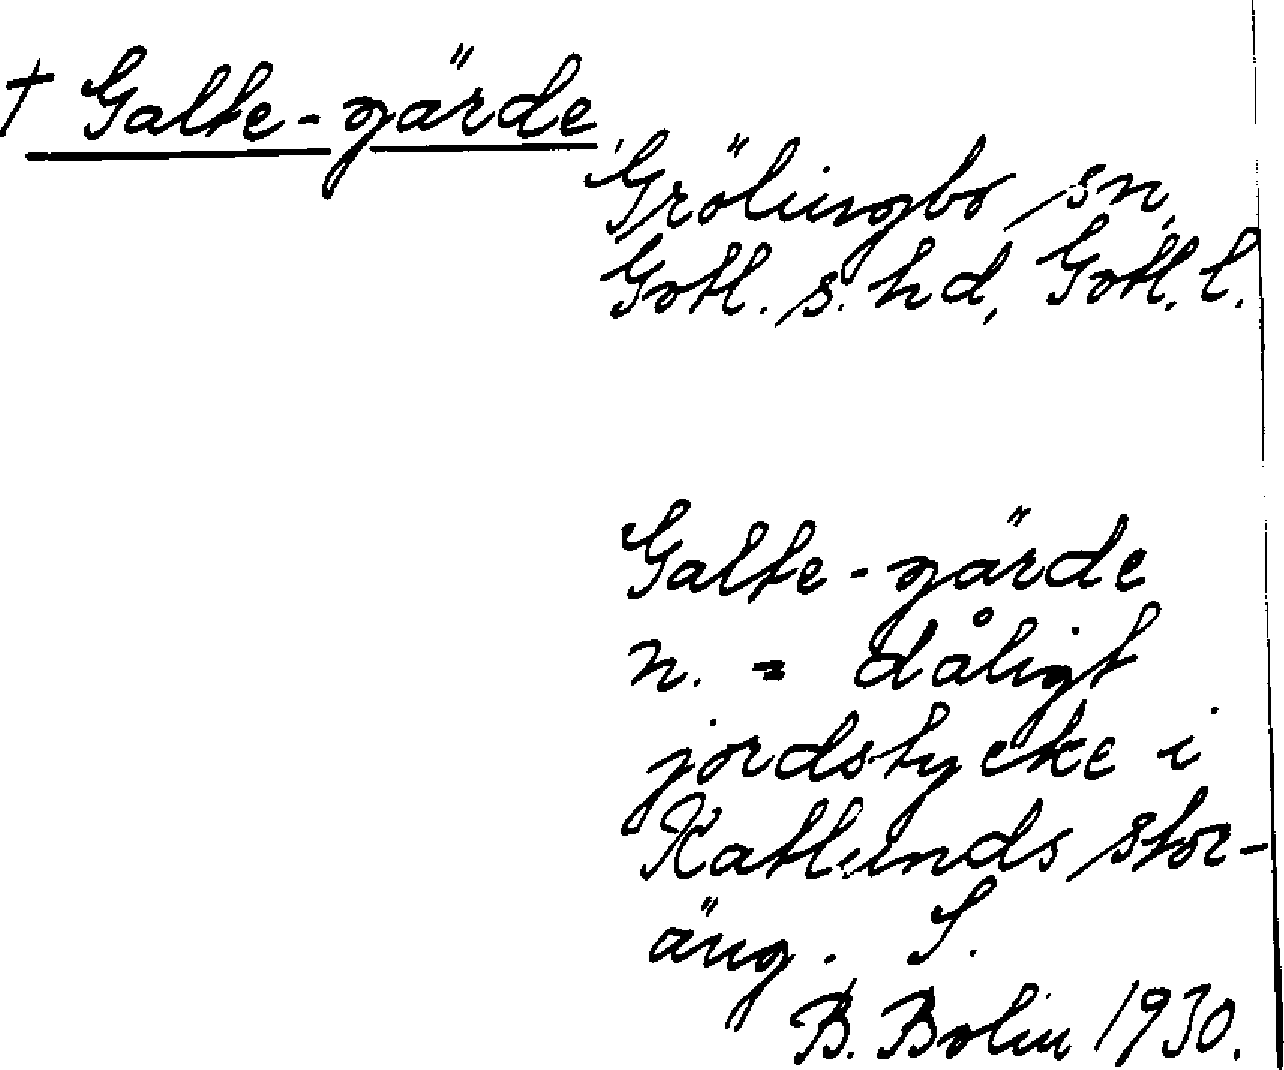 † Galte-gärde
Grötlingbo sn,
Gotl. s. hd, Gotl. l.
Galte-gärde
n. = dåligt
jordstycke i
Kattlunds stor-
äng. S.
B. Bolin 1930.